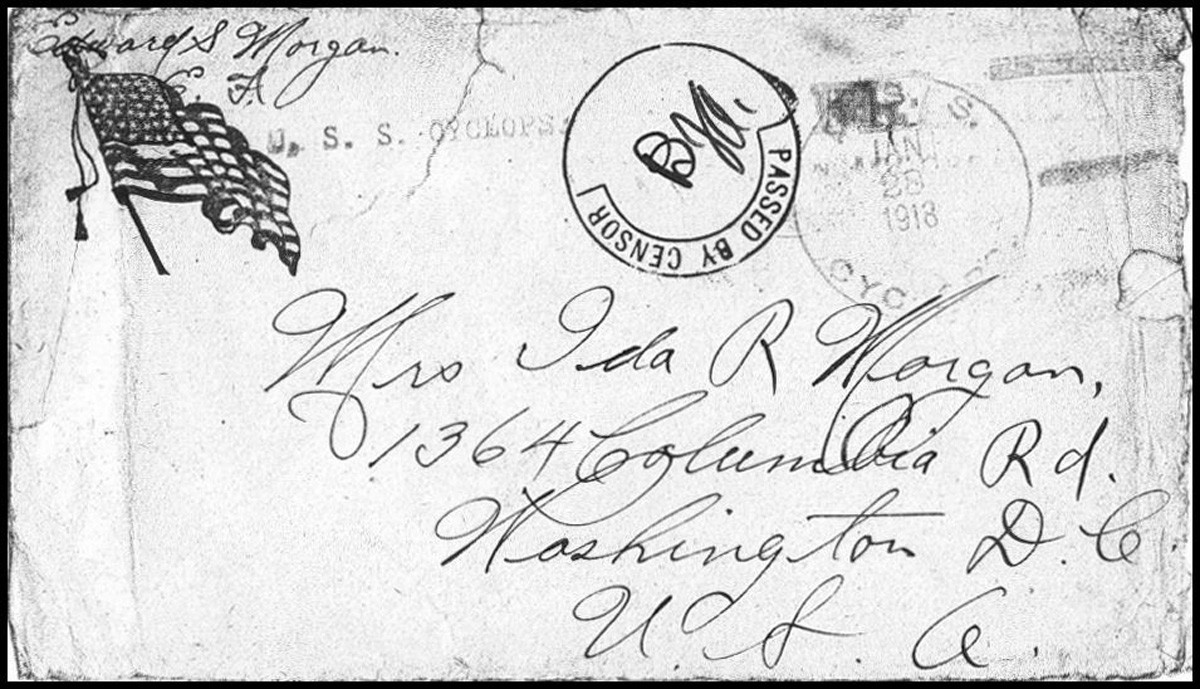 Edward S Morgan.
E. A
U. S. S. CYCLOPS.
PASSED BY CENSOR
U. S. S.
JAN
28
1918
CYC
Mrs Ida R Morgan,
1364 Columbia Rd.
Washington D. C
U. S. A.